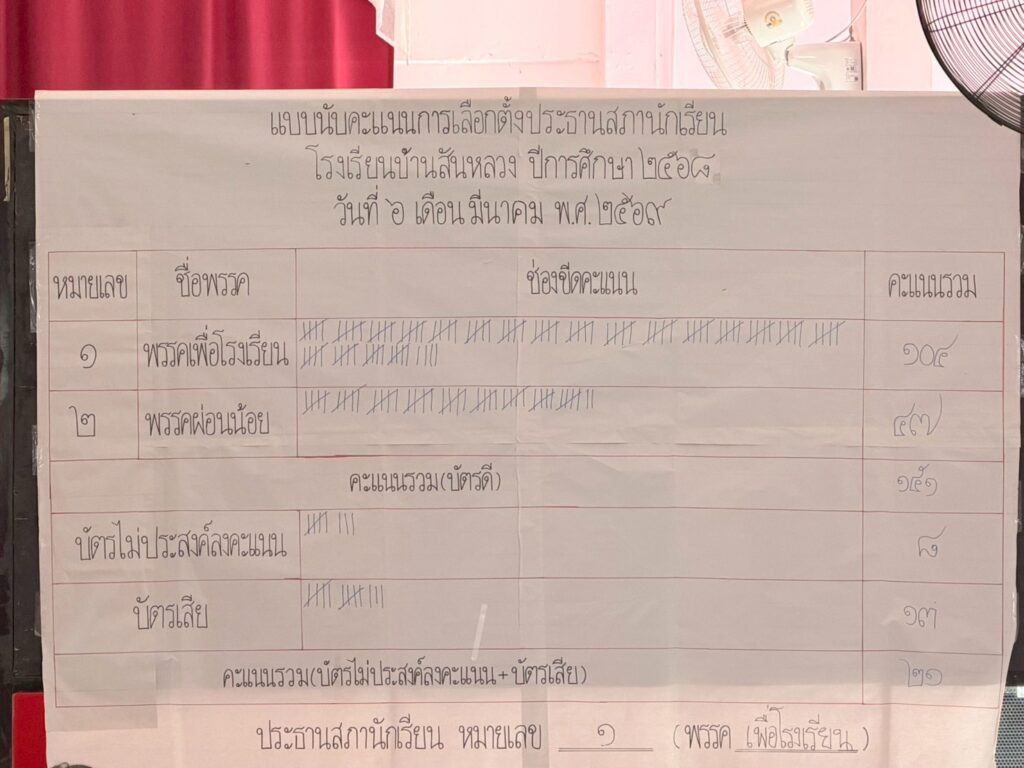 แบบนับคะแนนการเลือกตั้งประธานสภานักเรียน
โรงเรียนบ้านสันหลวง ปีการศึกษา ๒๕๖๘
วันที่ ๖ เดือน มีนาคม พ.ศ. ๒๕๖๙
หมายเลข ชื่อพรรค ช่องขีดคะแนน คะแนนรวม
๑ พรรคเพื่อโรงเรียน ๑๐๔
๒ พรรคผ่อนน้อย ๔๗
คะแนนรวม(บัตรดี) ๑๕๑
บัตรไม่ประสงค์ลงคะแนน ๘
บัตรเสีย ๑๓
คะแนนรวม(บัตรไม่ประสงค์ลงคะแนน+บัตรเสีย) ๒๑
ประธานสภานักเรียน หมายเลข ๑ (พรรค เพื่อโรงเรียน)